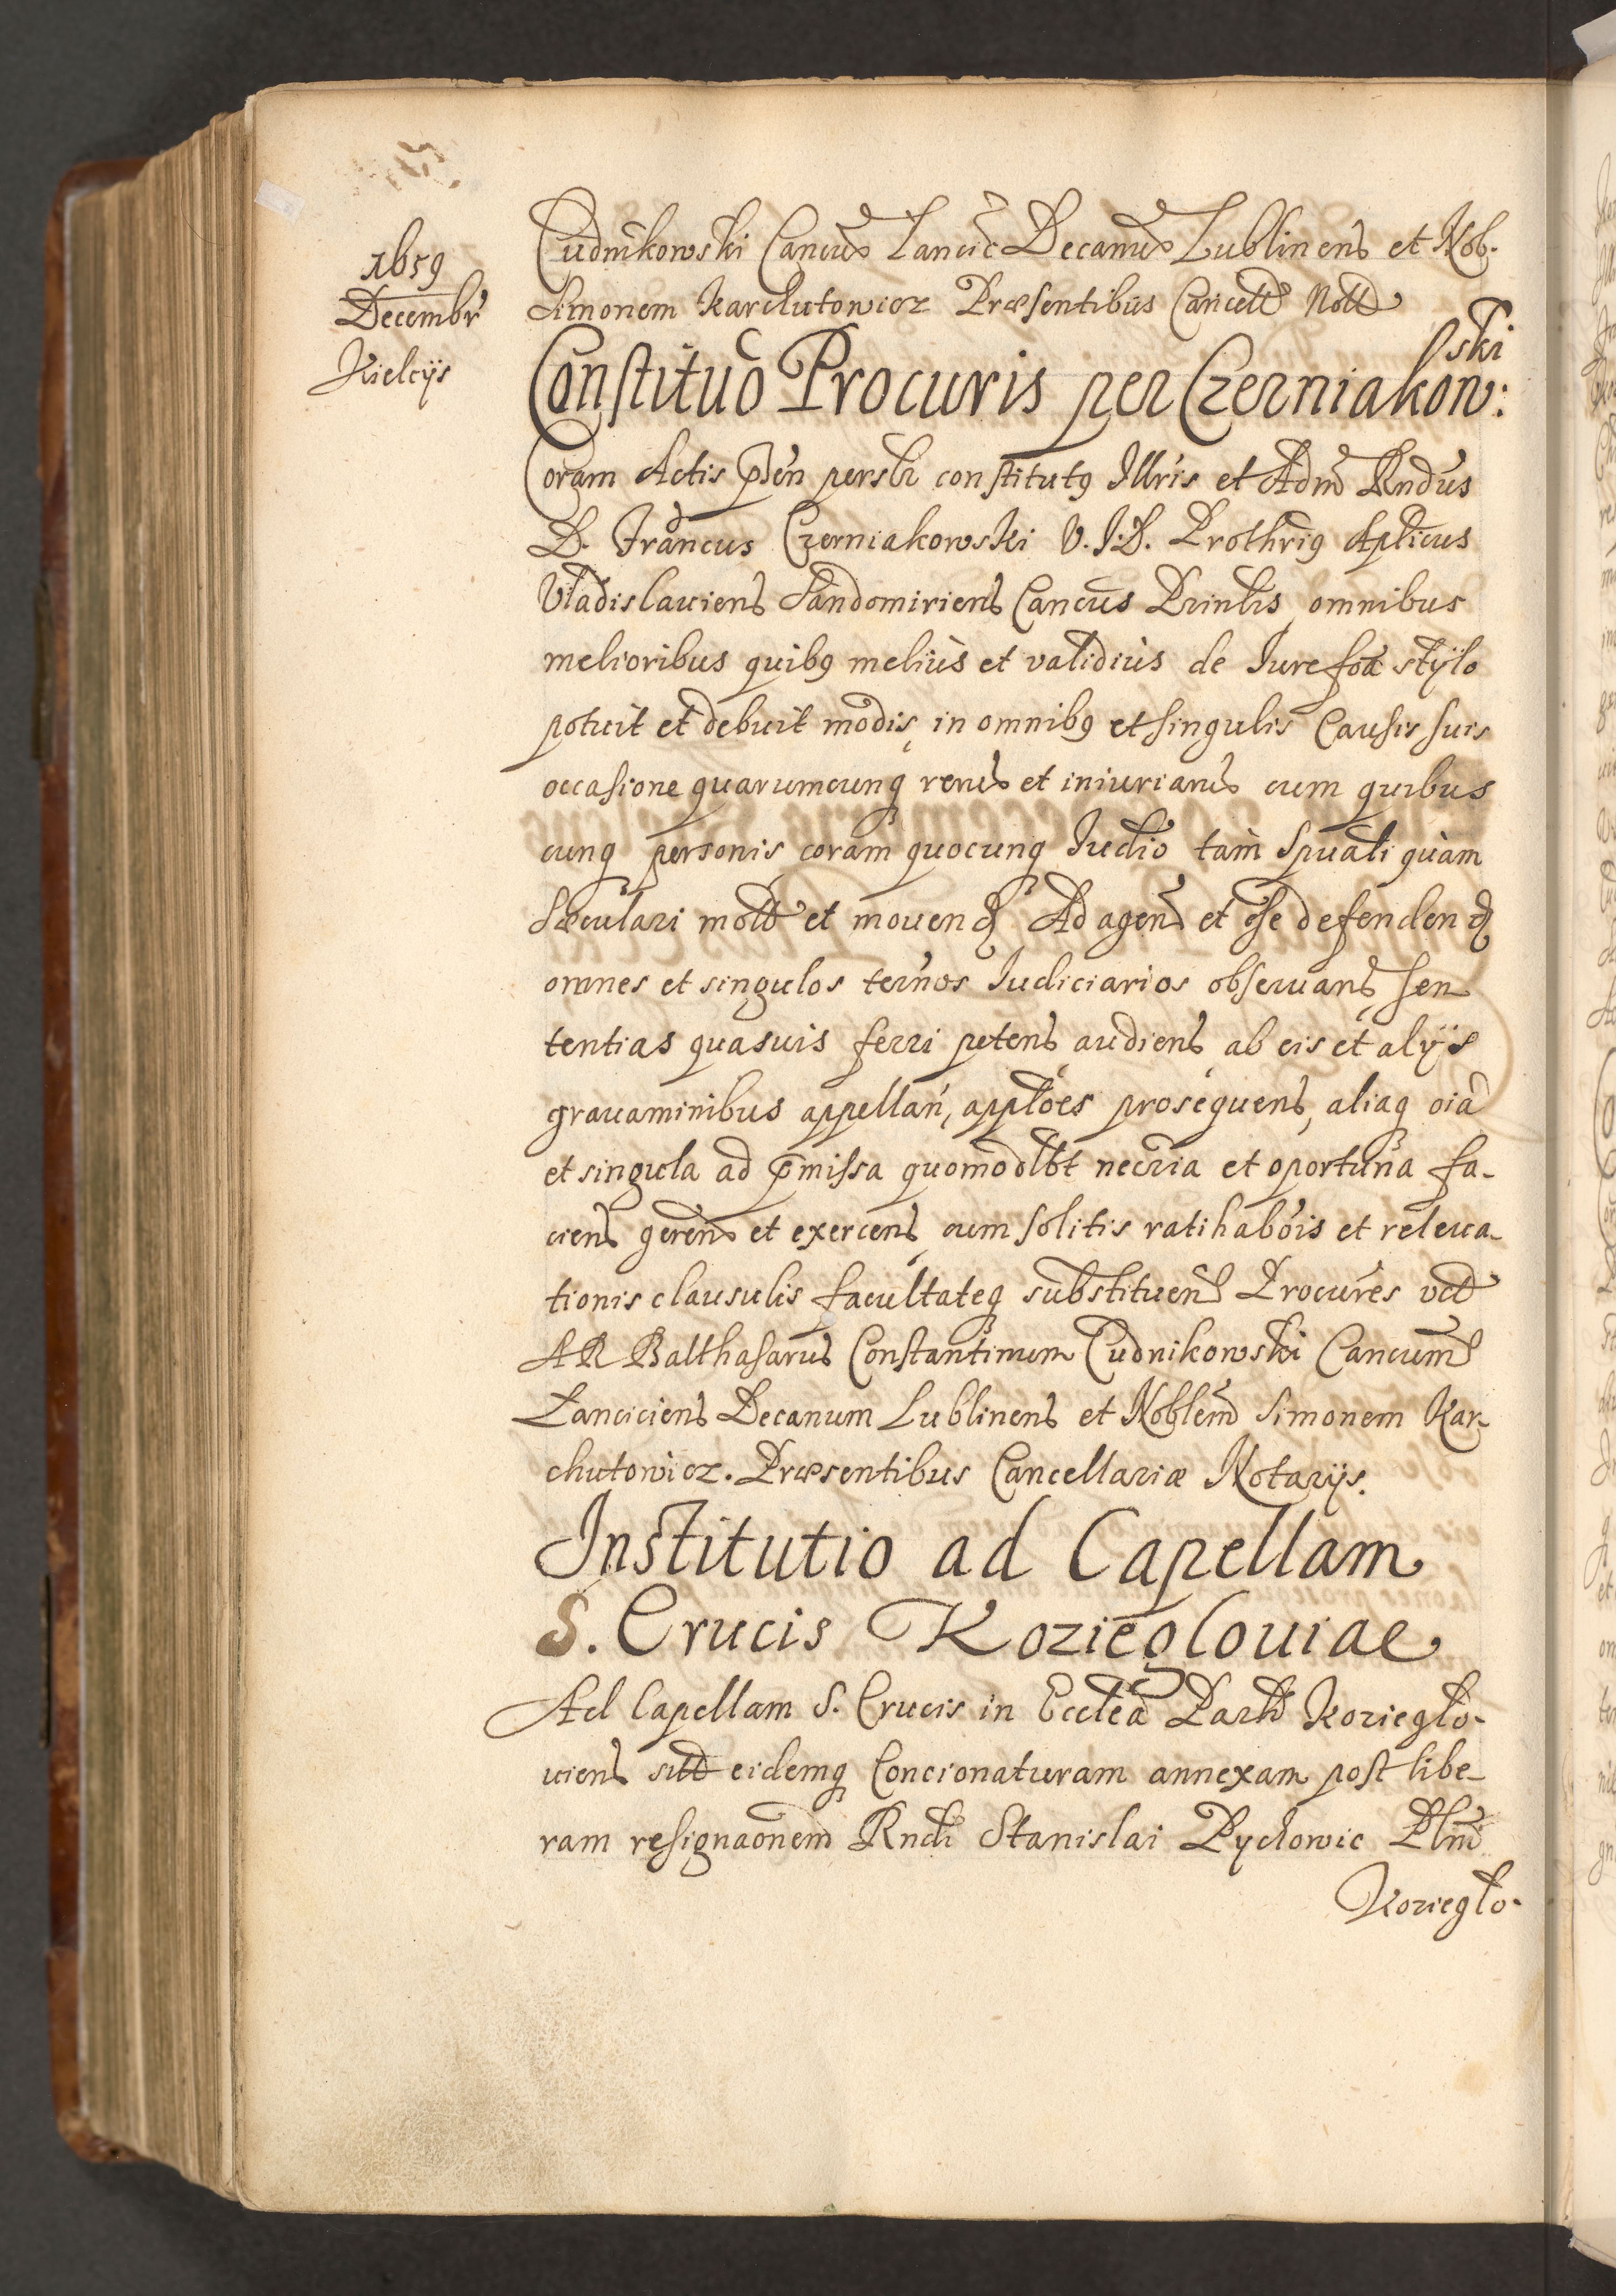 1659
Decembr
Kielcijs
Cudnikowski Cancus Lancic Decanus Lublinens et Nob.
Simonem Karchutowicz Præsentibus Cancell Nott
Constituo Procuris per Czerniakow:ski
Coram Actis pñ perslr constitutq Illris et Adm Rndus
D. Francus Czerniakowski V.I.D. Prothriq Aplicus
Vladislauiens Sandomiriens Cancus Prinlis omnibus
melioribus quibq meliùs et validiùs de Iure foa stÿlo
potuit et debuit modis, in omnibq et singulis Causis suis
occasione quarumcunq rerus et iniuriarus cum quibus
cunq personis coram quocunq Iudio tàm Spuali quàm
Sæculari mott et mouend Ad agend et se defendend
omnes et singulos termos Iudiciarios obseruans sen
tentias quasuis ferri petens audiens ab eis et alÿs
grauaminibus appellan, applões prosequens, aliaq oia
et singula ad pmissa quomodlbt necria et oportuna fa-
ciens gerens et exercens cum solitis ratihabois et releua-
tionis clausulis facultateq substituend Procures vett
AR Balthasarus Constantinum Cudnikowski Cancum
Lanciciens Decanum Lublinens et Noblem Simonem Kar-
chutowicz. Præsentibus Cancellariæ Notarijs.
Institutio ad Capellam
S. Crucis Kozieglouiae
Ad Capellam S. Crucis in Ecclea Parll Kozieglo-
uiens sitt eidemq Concionaturam annexam post libe-
ram resignaonem Rndi Stanislai Pyclowic Plni
Kozieglo-